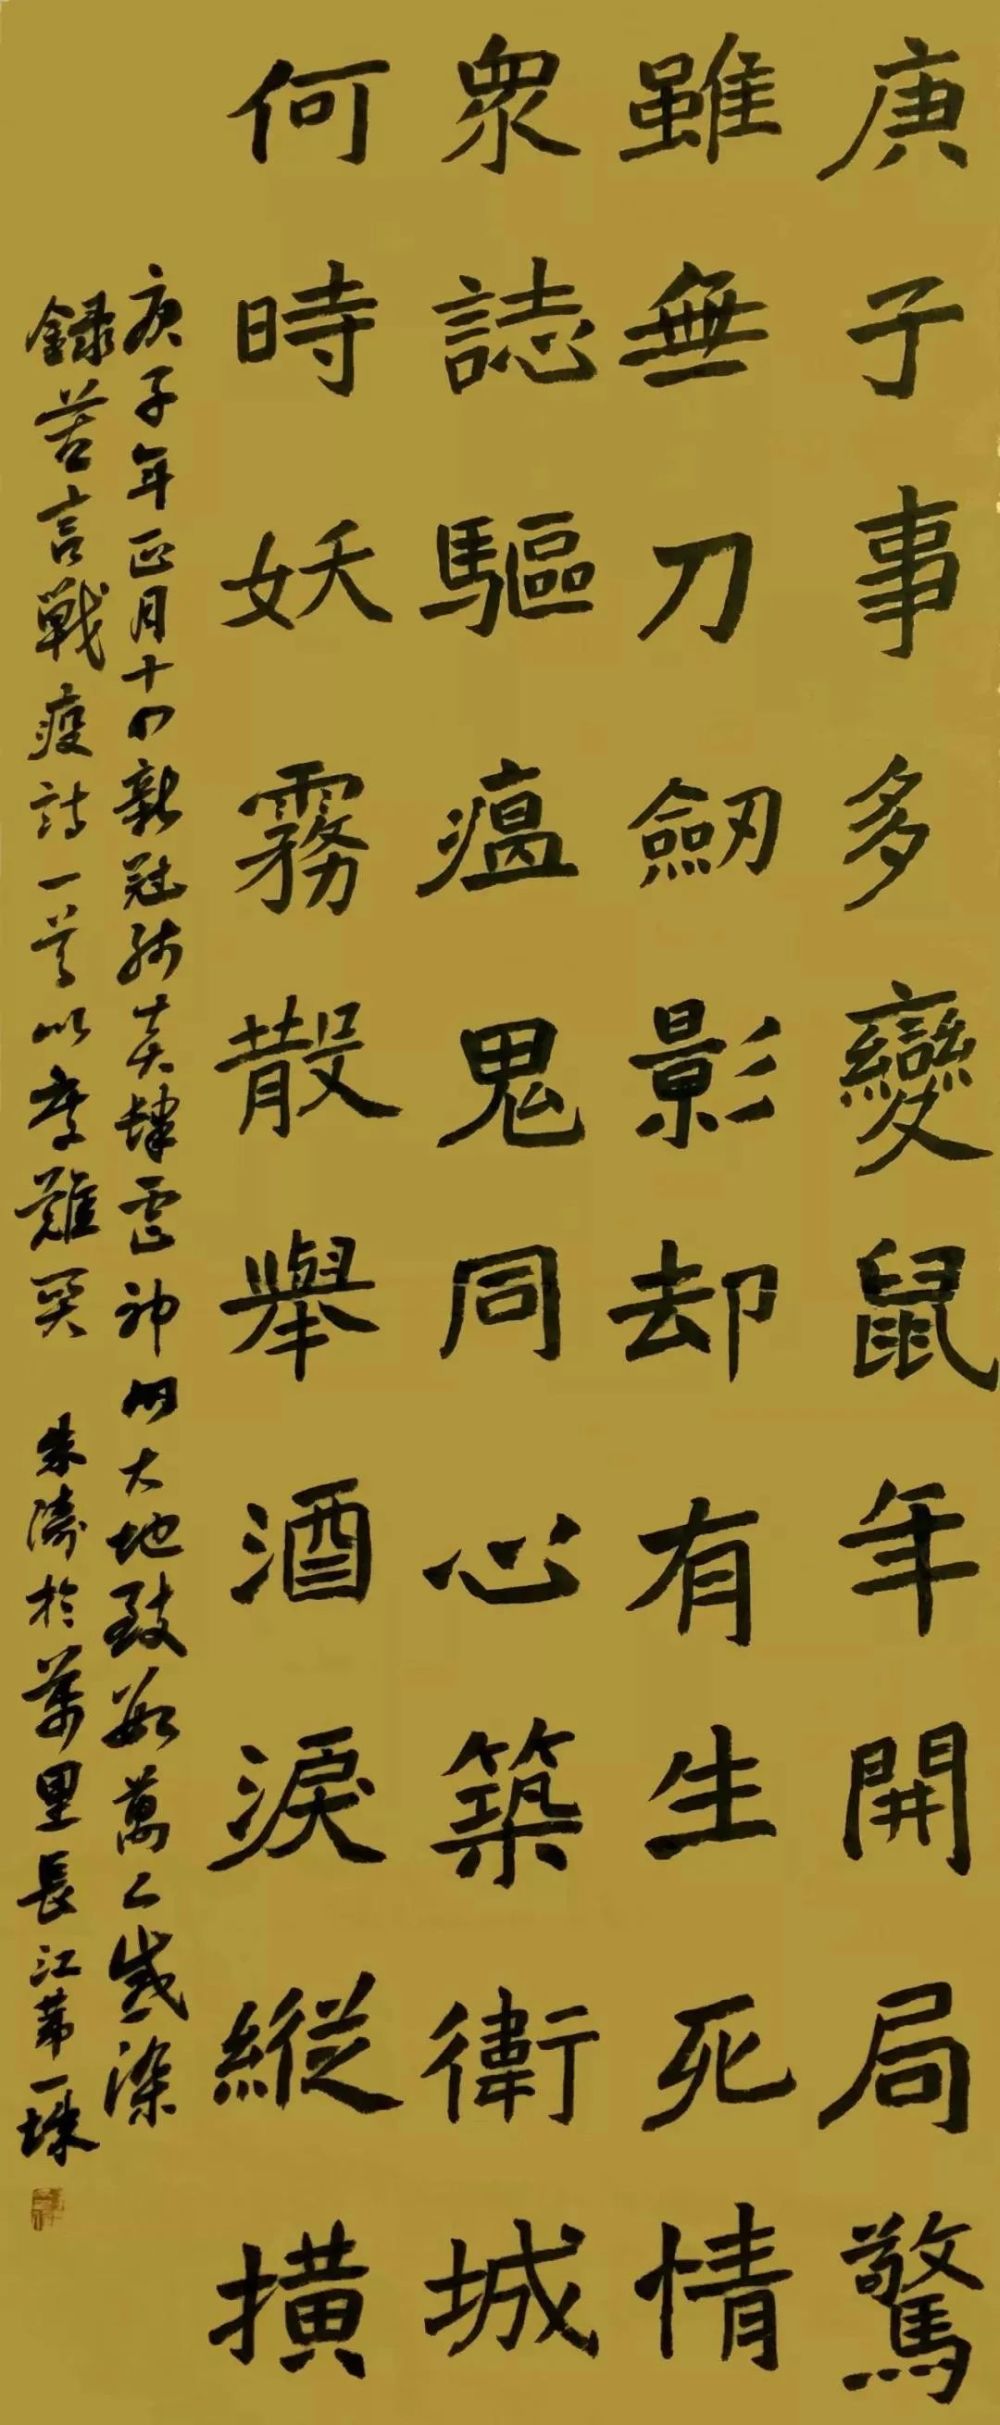 庚子事多變鼠年開局驚
雖無刀劒影却有生死情
眾誌驅瘟鬼同心築衛城
何時妖霧散舉酒淚縱橫
庚子年正月十四新冠肺炎肆虐神州大地致數萬人感染
錄苦言戰疫詩一首以寄難哭 朱濤於萬里長江第一珠